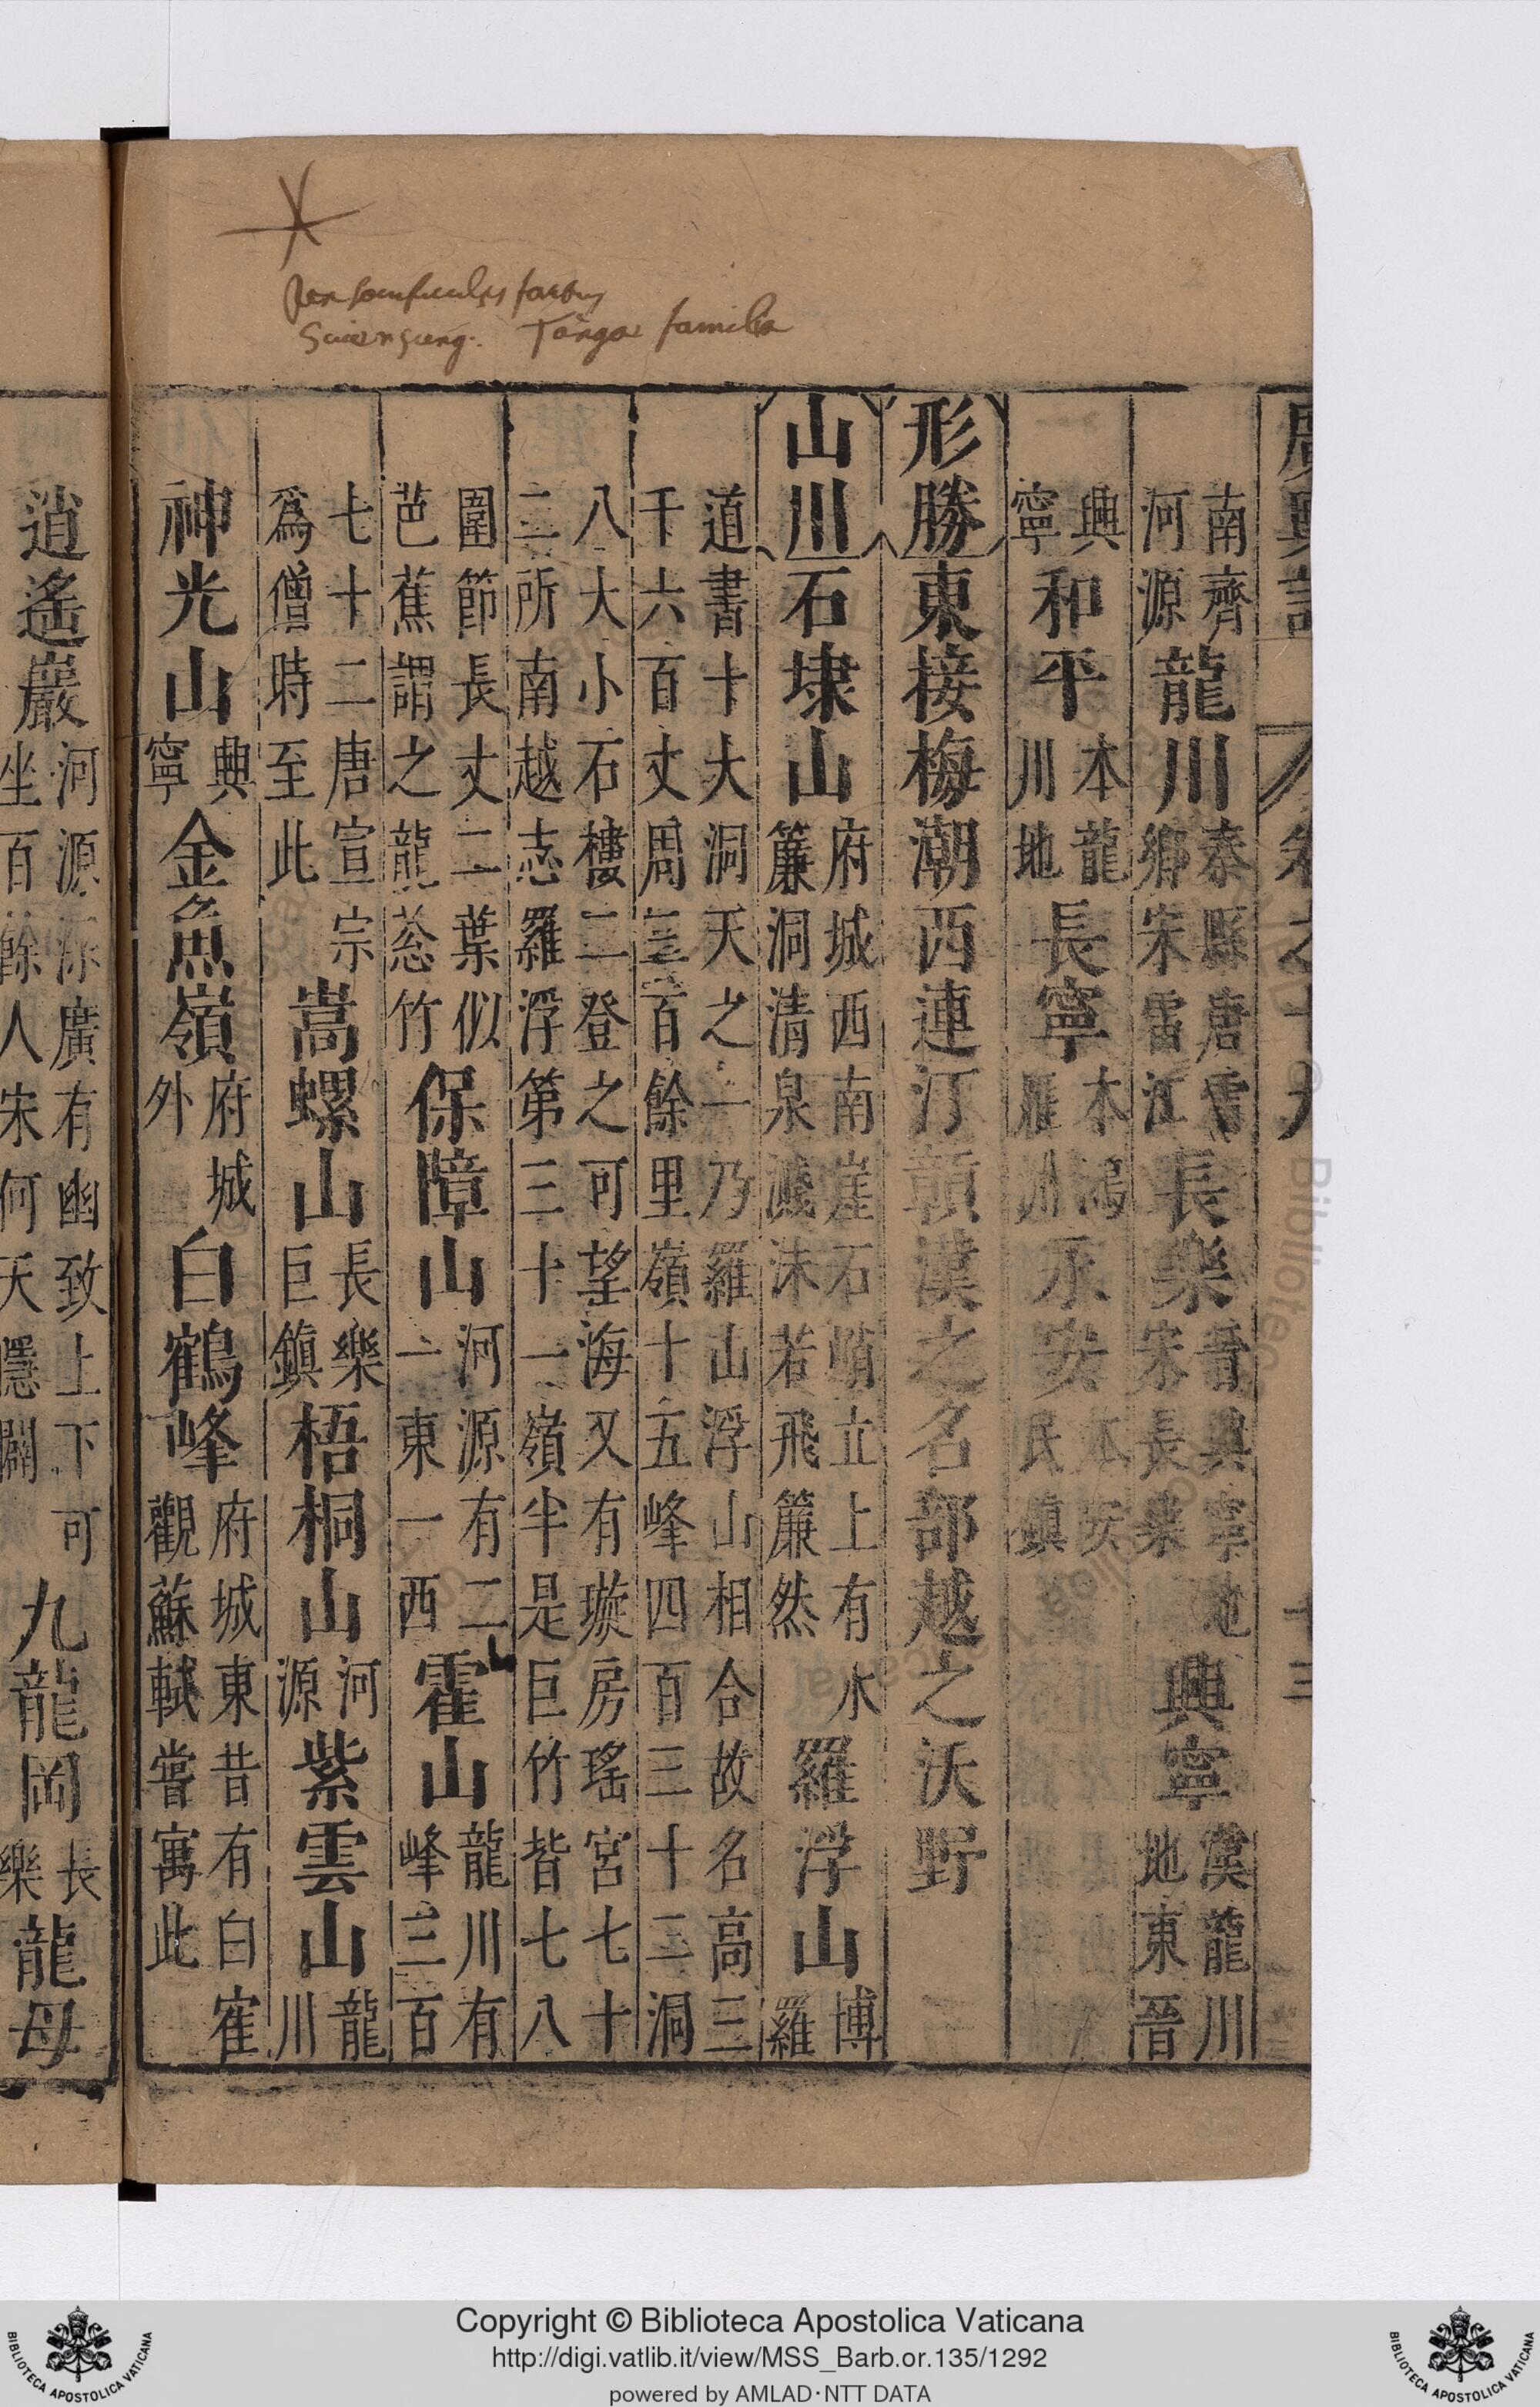 南齊河源龍川秦縣唐雷鄉宋雷江長樂晉興寧地宋長樂興寧漢龍川地東晉
興寧和平本龍川地長寧本鴻雁洲永安本安民鎮
形勝東接梅潮西連汀贛漢之名部越之沃野
山川石埭山府城西南崖石峭立上有水簾洞清泉濺沫若飛簾然羅浮山博羅
道書十大洞天之一乃羅山浮山相合故名高三千六百丈周三百餘里嶺十五峰四百三十二洞
八大小石樓二登之可望海又有璇房瑤宮七十二所南越志羅浮第三十一嶺半是巨竹皆七八
圍節長丈二葉似芭蕉謂之龍葱竹保障山河源有二一東一西霍山龍川有峰三百
七十二唐宣宗為僧時至此嵩螺山長樂巨鎮梧桐山河源紫雲山龍川
神光山興寧金魚嶺府城外白鶴峰府城東昔有白寉觀蘇軾嘗寓此
逍遙巖河源有幽致上下可坐百餘人宋何天隱闢九龍岡長樂龍母
Tanga familia
Copyright © Biblioteca Apostolica Vaticana
http://digi.vatlib.it/view/MSS_Barb.or.135/1292
powered by AMLAD·NTT DATA
BIBLIOTECA APOSTOLICA VATICANA
BIBLIOTECA APOSTOLICA VATICANA